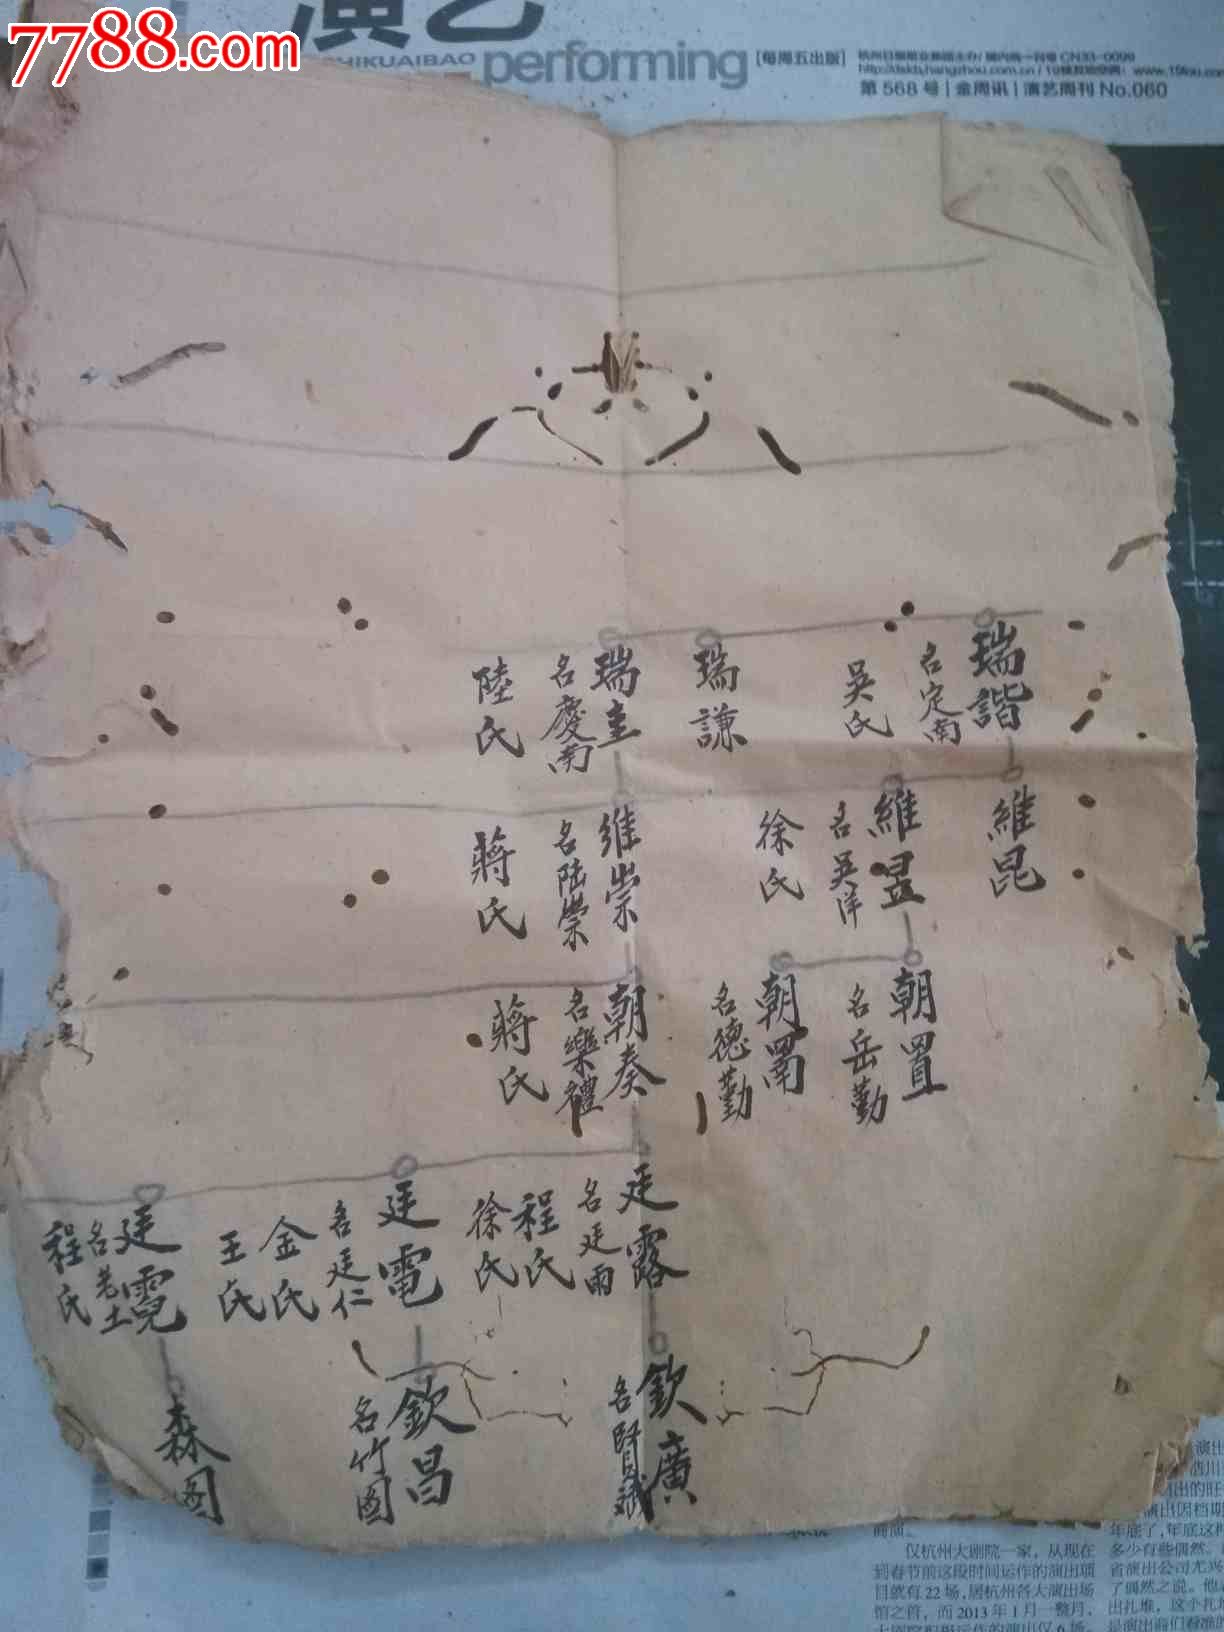 7788.com
演艺
SHIKUAIBAO
performing
[每周五出版]
第568号|金周讯|演艺周刊 No.060
瑞諧
名定南
吳氏
瑞謙
瑞圭
名慶南
陸氏
維昆
維昱
名吳洋
徐氏
維崇
名陆崇
蔣氏
朝置
名岳勤
朝
名德勤
朝奏
名樂禮
蔣氏
廷露
名廷雨
程氏
徐氏
廷電
名廷仁
金氏
王氏
廷霓
名老土
程氏
欽廣
名賢斌
欽昌
名竹圖
森图
仅杭州大剧院一家，从现在
到春节前这段时间运作的演出项
目就有22场，居杭州各大演出场
馆之首，而2013年1月一整月，